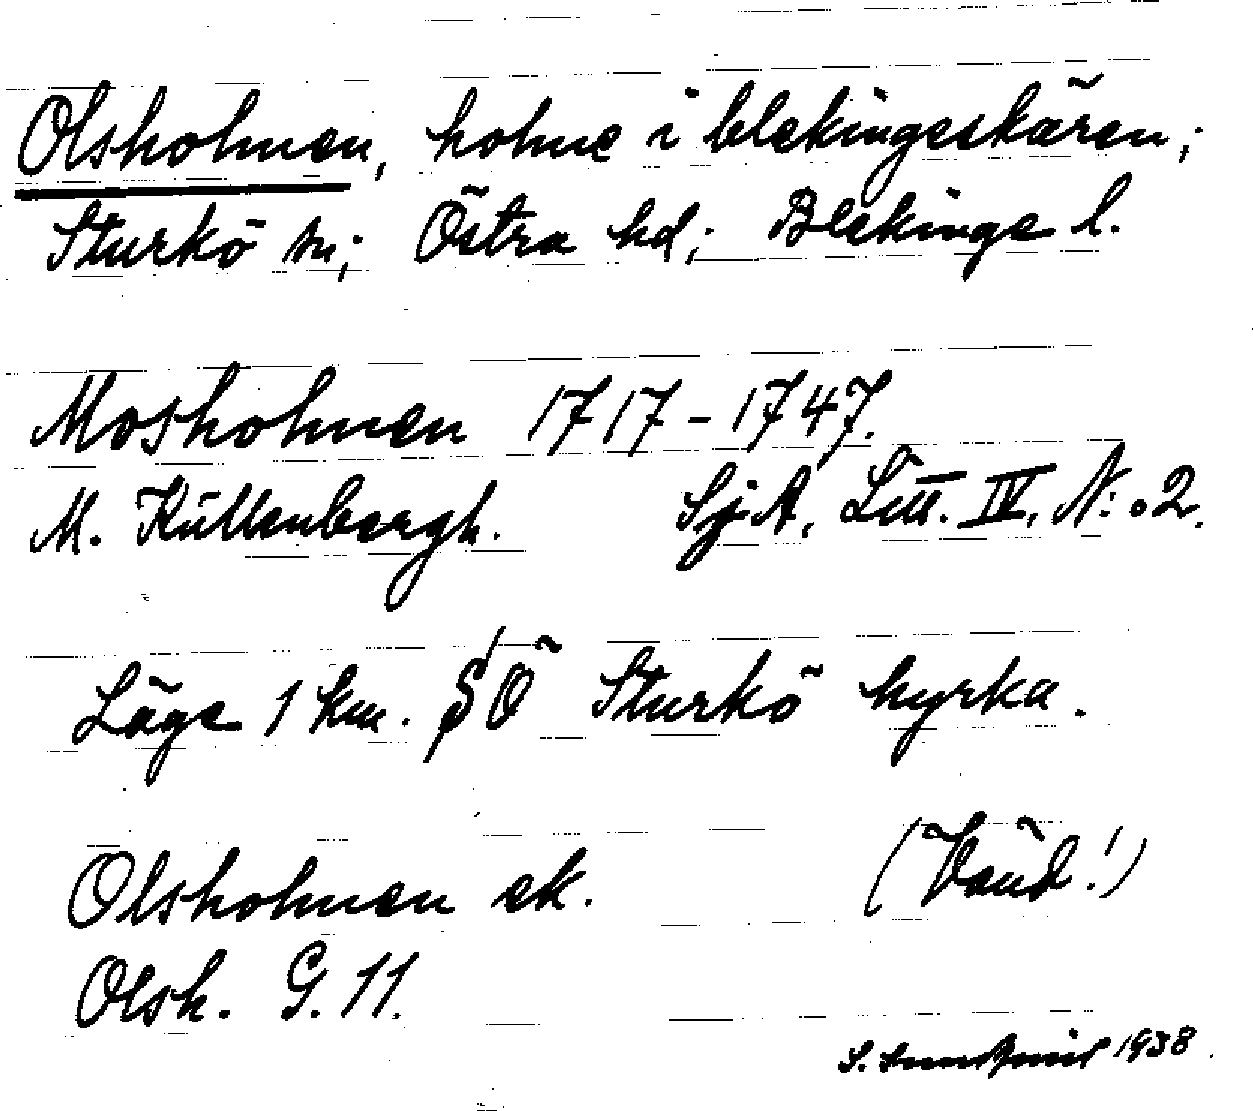 Olsholmen, holme i blekingeskären;
Sturkö sn; Östra hd; Blekinge l.
Mosholmen 1717-1747.
M. Küllenbergh. SjA, Litt. IV, N:o2.
Läge 1 km. SÖ Sturkö kyrka.
Olsholmen ek. (Vänd!)
Olsh. G. 11.
S. 1938.